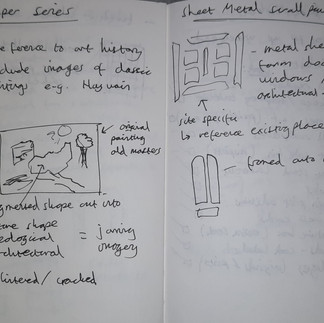 per series
reference to art history
clude images of classic
ntings e.g.
original
painting
old masters
shape cut into
shape
eological
architectural
= jarring
imagery
lintered / cracked
Sheet Metal Scroll
- metal she
form doo
windows
architectural
site specific
↳ reference existing place
- framed onto